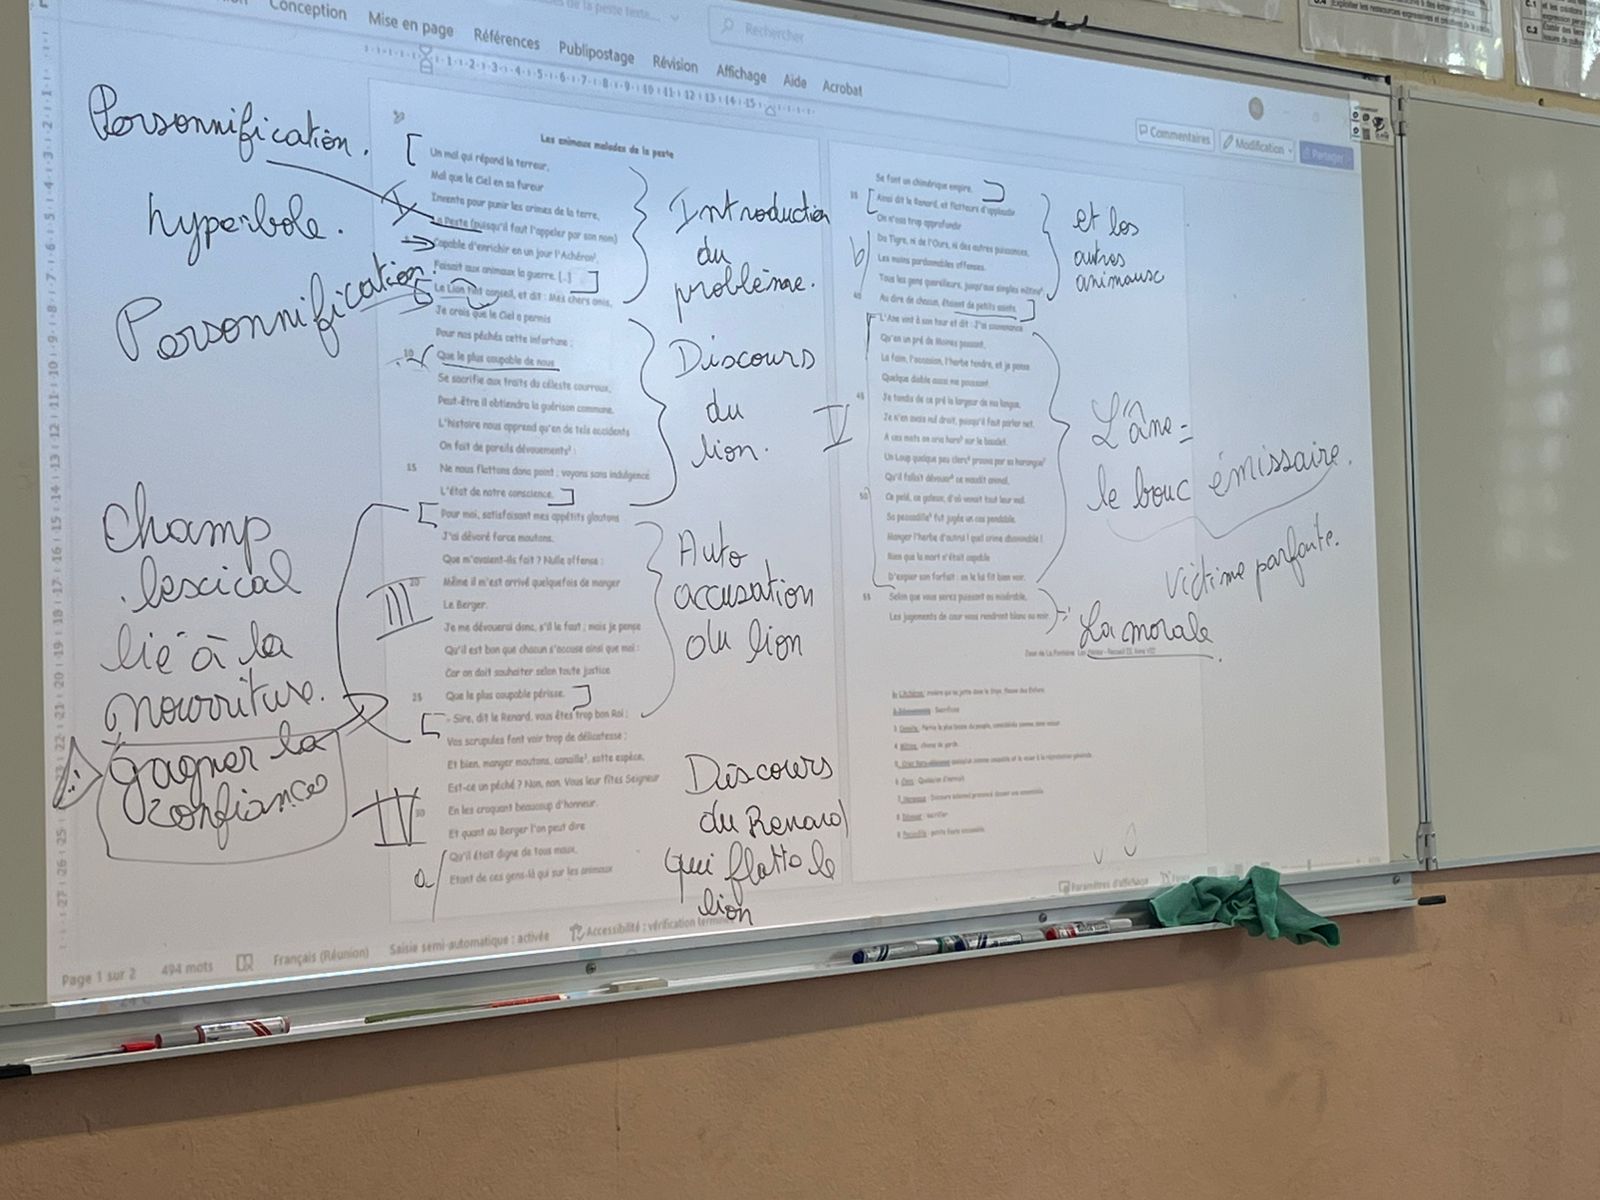 Conception
Mise en page
Références
Publipostage
Révision
Affichage
Aide
Acrobat
Rechercher
Commentaires
Modification
Partager
Personnification.
hyperbole.
Personnification.
champ
lexical
lié à la
nourriture.
gagner la
confiance
Les animaux malades de la peste
Un mal qui répand la terreur,
Mal que le Ciel en sa fureur
Inventa pour punir les crimes de la terre,
La Peste (puisqu'il faut l'appeler par son nom)
Capable d'enrichir en un jour l'Achéron¹,
Faisait aux animaux la guerre. [..]
Le Lion tint conseil, et dit : Mes chers amis,
Je crois que le Ciel a permis
Pour nos péchés cette infortune ;
10 Que le plus coupable de nous
Se sacrifie aux traits du céleste courroux,
Peut-être il obtiendra la guérison commune.
L'histoire nous apprend qu'en de tels accidents
On fait de pareils dévouements² :
15 Ne nous flattons donc point ; voyons sans indulgence
L'état de notre conscience.
Pour moi, satisfaisant mes appétits gloutons
J'ai dévoré force moutons.
Que m'avaient-ils fait ? Nulle offense :
20 Même il m'est arrivé quelquefois de manger
Le Berger.
Je me dévouerai donc, s'il le faut ; mais je pense
Qu'il est bon que chacun s'accuse ainsi que moi :
Car on doit souhaiter selon toute justice
25 Que le plus coupable périsse.
- Sire, dit le Renard, vous êtes trop bon Roi ;
Vos scrupules font voir trop de délicatesse ;
Et bien, manger moutons, canaille³, sotte espèce,
Est-ce un péché ? Non, non. Vous leur fîtes Seigneur
30 En les croquant beaucoup d'honneur.
Et quant au Berger l'on peut dire
Qu'il était digne de tous maux,
Etant de ces gens-là qui sur les animaux
III
IV
a/
Introduction
du
problème.
Discours
du
lion.
Auto
accusation
du lion
Discours
du Renard
qui flatte le
lion
Se font un chimérique empire.
35 Ainsi dit le Renard, et flatteurs d'applaudir.
On n'osa trop approfondir
Du Tigre, ni de l'Ours, ni des autres puissances,
Les moins pardonnables offenses.
Tous les gens querelleurs, jusqu'aux simples mâtins⁴,
40 Au dire de chacun, étaient de petits saints.
L'Ane vint à son tour et dit : J'ai souvenance
Qu'en un pré de Moines passant,
La faim, l'occasion, l'herbe tendre, et je pense
Quelque diable aussi me poussant,
45 Je tondis de ce pré la largeur de ma langue.
Je n'en avais nul droit, puisqu'il faut parler net.
A ces mots on cria haro⁵ sur le baudet.
Un Loup quelque peu clerc⁶ prouva par sa harangue⁷
Qu'il fallait dévouer⁸ ce maudit animal,
50 Ce pelé, ce galeux, d'où venait tout leur mal.
Sa peccadille⁹ fut jugée un cas pendable.
Manger l'herbe d'autrui ! quel crime abominable !
Rien que la mort n'était capable
D'expier son forfait : on le lui fit bien voir.
55 Selon que vous serez puissant ou misérable,
Les jugements de cour vous rendront blanc ou noir.
b/
V
et les
autres
animaux
L'âne =
le bouc émissaire.
victime parfaite.
La morale.
Page 1 sur 2
494 mots
Français (Réunion)
Saisie semi-automatique : activée
Accessibilité : vérification terminée
Paramètres d'affichage